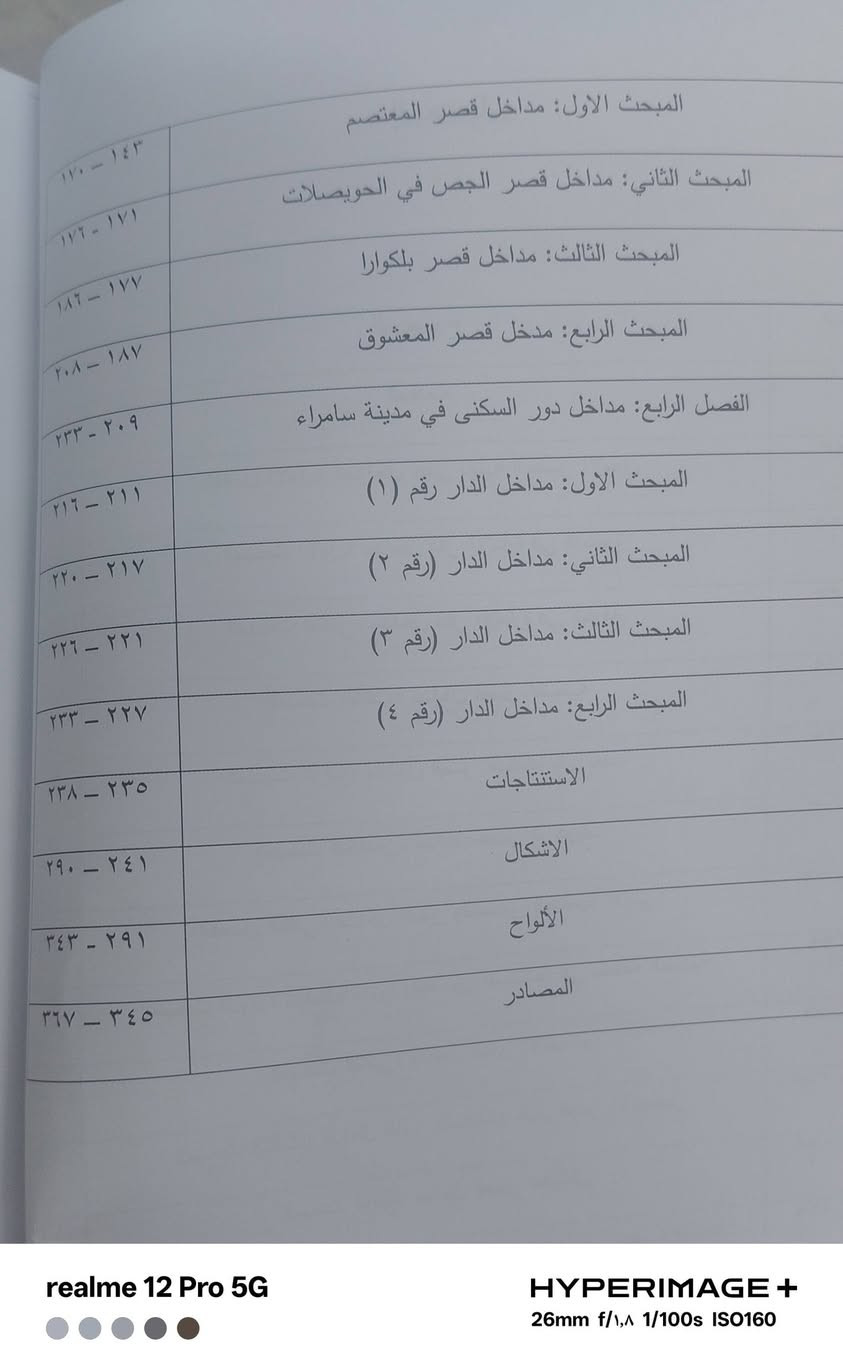 المبحث الاول: مداخل قصر المعتصم ١٤٣ – ١٧٠
المبحث الثاني: مداخل قصر الجص في الحويصلات ١٧١ - ١٧٦
المبحث الثالث: مداخل قصر بلكوارا ١٧٧ – ١٨٦
المبحث الرابع: مدخل قصر المعشوق ١٨٧ – ٢٠٨
الفصل الرابع: مداخل دور السكنى في مدينة سامراء ٢٠٩ - ٢٣٣
المبحث الاول: مداخل الدار رقم (١) ٢١١ – ٢١٦
المبحث الثاني: مداخل الدار (رقم ٢) ٢١٧ – ٢٢٠
المبحث الثالث: مداخل الدار (رقم ٣) ٢٢١ – ٢٢٦
المبحث الرابع: مداخل الدار (رقم ٤) ٢٢٧ – ٢٣٣
الاستنتاجات ٢٣٥ – ٢٣٨
الاشكال ٢٤١ – ٢٩٠
الألواح ٢٩١ - ٣٤٣
المصادر ٣٤٥ – ٣٦٧
realme 12 Pro 5G
HYPERIMAGE+
26mm f/١,٨ 1/100s ISO160